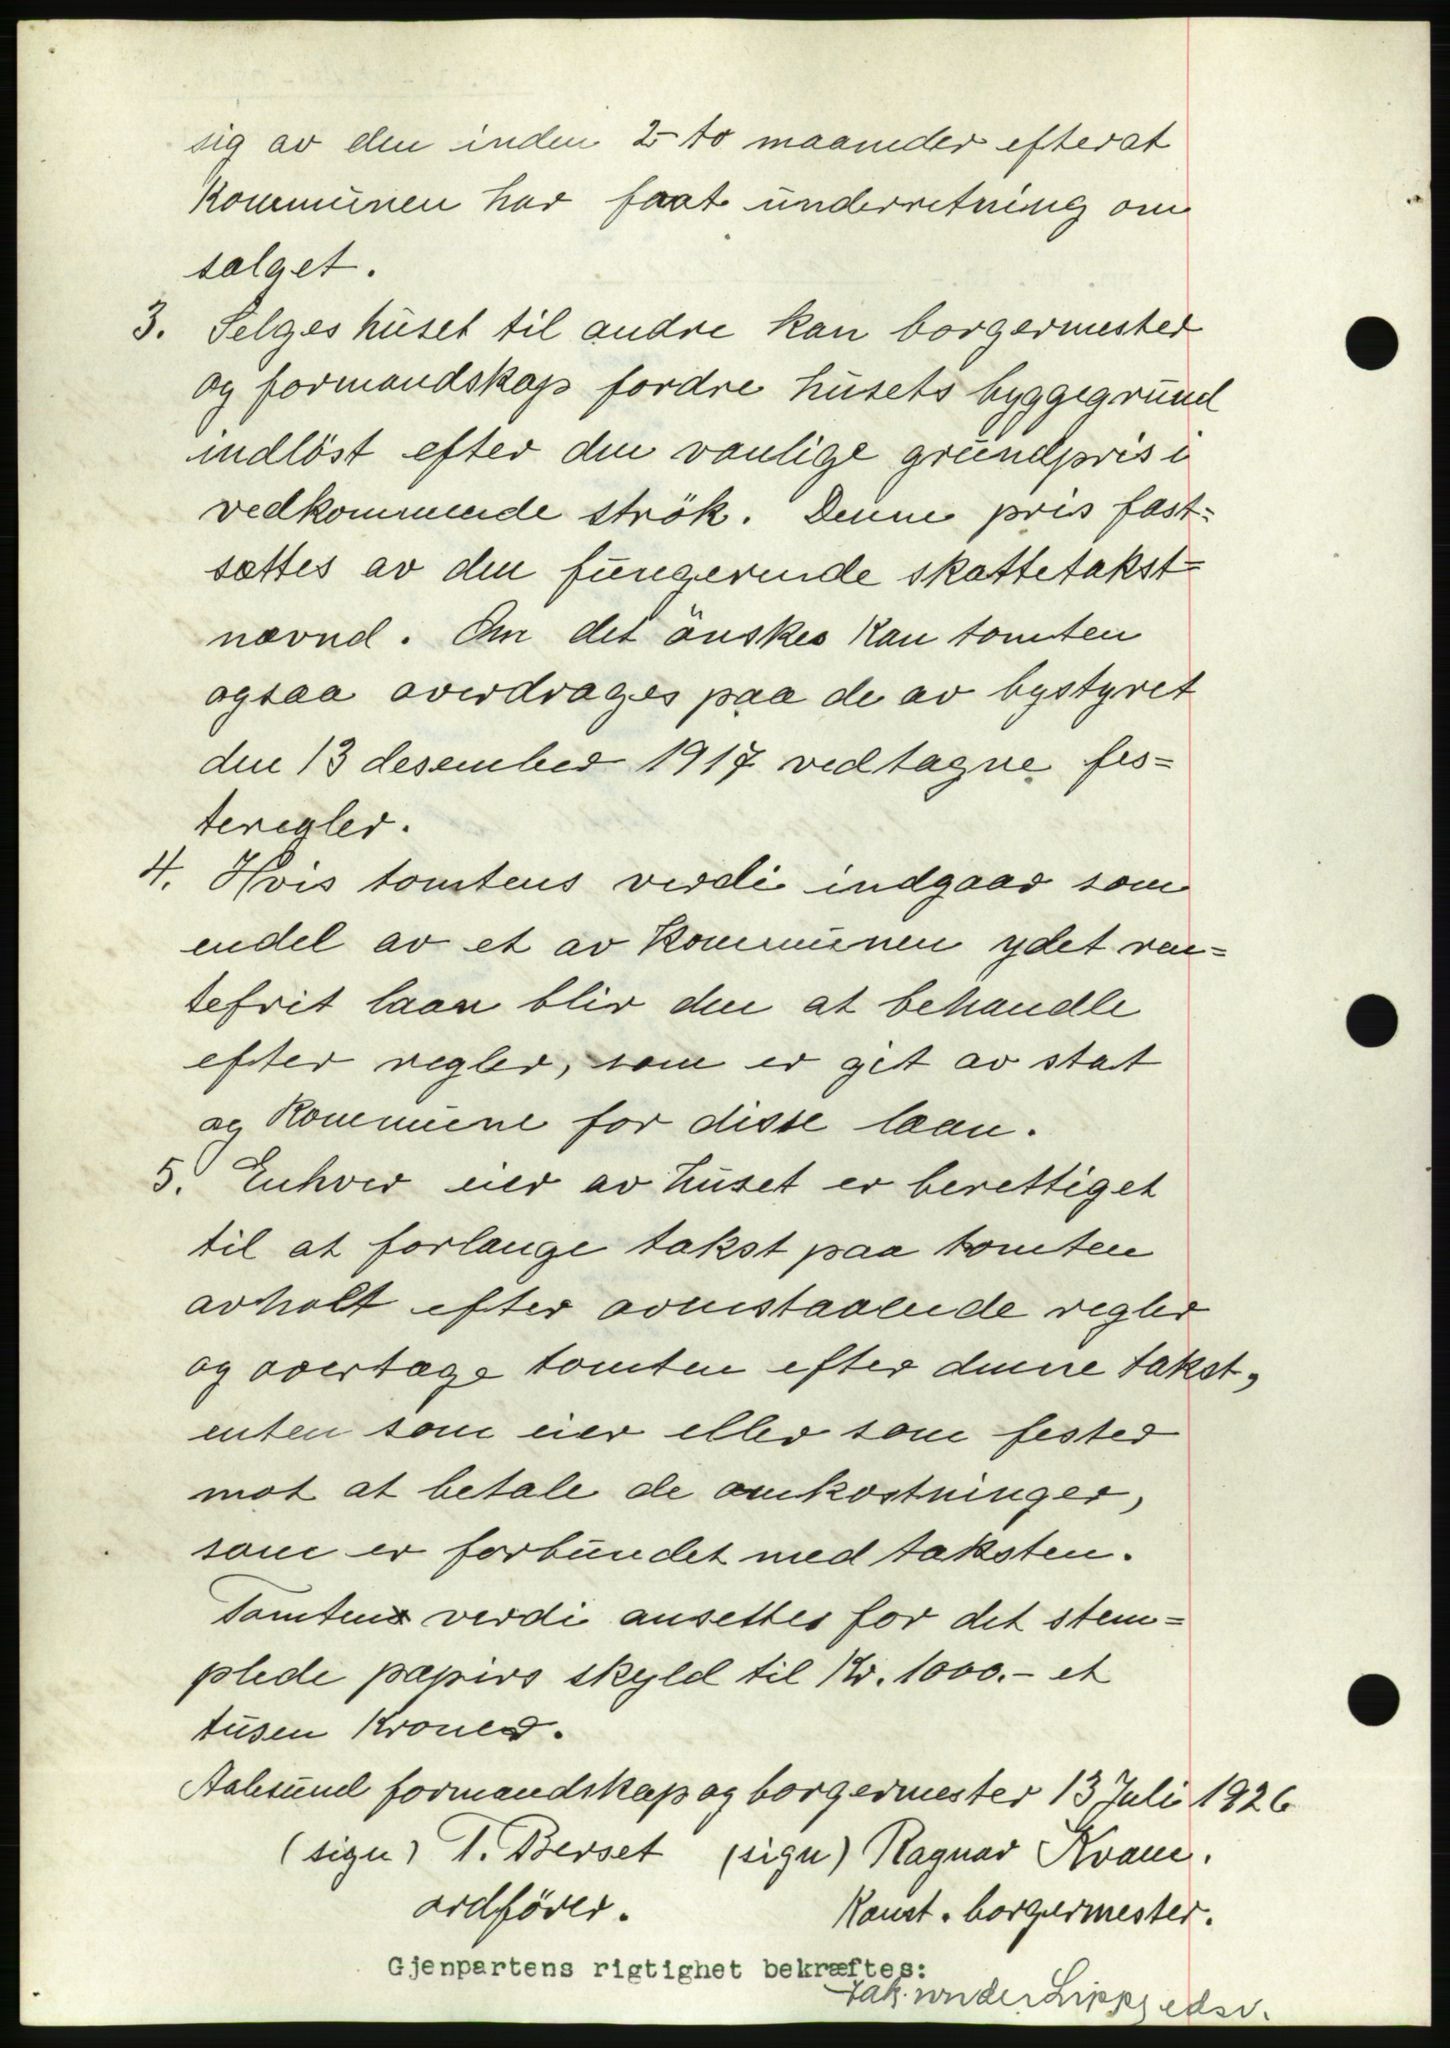 sig av den inden 2- to maaneder efterat
kommunen har faat underretning om
salget.
3. Selges huset til andre kan borgermester
og formandskap fordre husets byggegrund
indlöst efter den vanlige grundpris i
vedkommende strök. Denne pris fast=
sættes av den fungerende skattetakst=
nævnd. Om det önskes kan tomten
ogsaa overdrages paa de av bystyret
den 13 desember 1917 vedtagne fes=
teregler.
4. Hvis tomtens verdi indgaar som
endel av et av kommunen ydet ren=
tefrit laan blir den at behandle
efter regler, som er git av stat
og kommune for disse laan.
5. Enhver eier av huset er berettiget
til at forlange takst paa tomten
avholt efter ovenstaaende regler
og overtage tomten efter denne takst,
enten som eier eller som fester
mot at betale de omkostninger,
som er forbundet med taksten.
Tomtens verdi ansettes for det stem=
plede papirs skyld til Kr. 1000.- et
tusen kroner.
Aalesund formandskap og borgermester 13 Juli 1926
(sign) T. Berset (sign) Ragnar Kvam.
ordförer. Konst. borgermester.
Gjenpartens rigtighet bekræftes:
edsv.